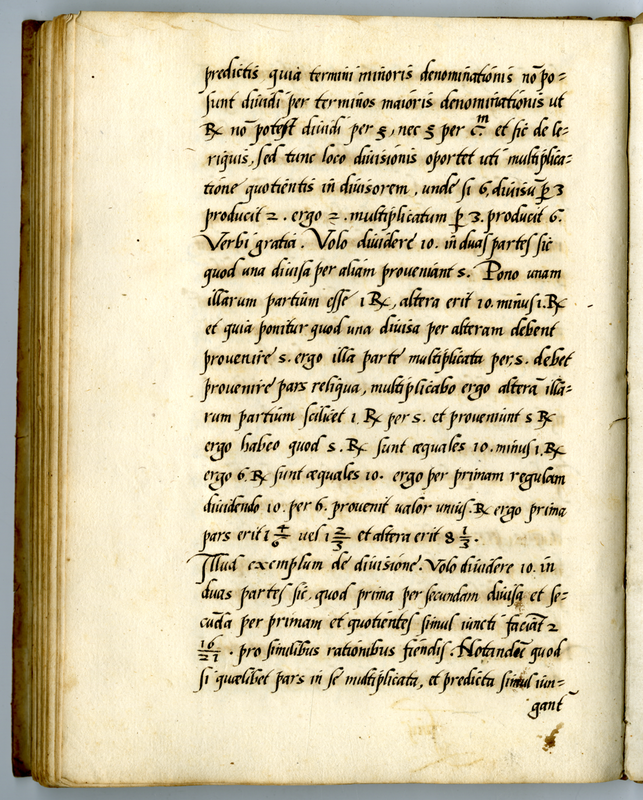 predictis quia termini minoris denominationis nõ po=
sunt diuidi per terminos maioris denominationis ut
℞ nõ potest diuidi per ξ, nec ξ per cͫ et sic de le=
riquis, sed tunc loco diuisionis oportet uti multiplica=
tione quotientis in diuisorem, unde si 6, diuisũ p̱ 3
producit 2. ergo 2. multiplicatum p̱ 3. producit 6.
Verbi gratia. Volo diuidere 10. in duas partes sic
quod una diuisa per aliam proueniant 5. Pono unam
illarum partium esse 1 ℞, altera erit 10. minus 1. ℞
et quia ponitur quod una diuisa per alteram debent
prouenire 5. ergo illa parte multiplicata per, 5. debet
prouenire pars reliqua, multiplicabo ergo alterã illa=
rum partium scilicet 1. ℞ per 5. et proueniunt 5 ℞
ergo habeo quod 5. ℞ sunt æquales 10. minus 1. ℞
ergo 6. ℞ sunt æquales 10. ergo per primam regulam
diuidendo 10. per 6. prouenit valor unius. ℞ ergo prima
pars erit 1 4/6 uel 1 2/3 et altera erit 8 1/3.
Illud exemplum de diuisione. Volo diuidere 10. in
duas partes sic, quod prima per secundam diuisa et se=
cũda per primam et quotientes simul iuncti faciãt 2
16/21. pro similibus rationibus fiendis. Notandũ quod
si quælibet pars in se multiplicata, et predicta simul iun=
gant̃